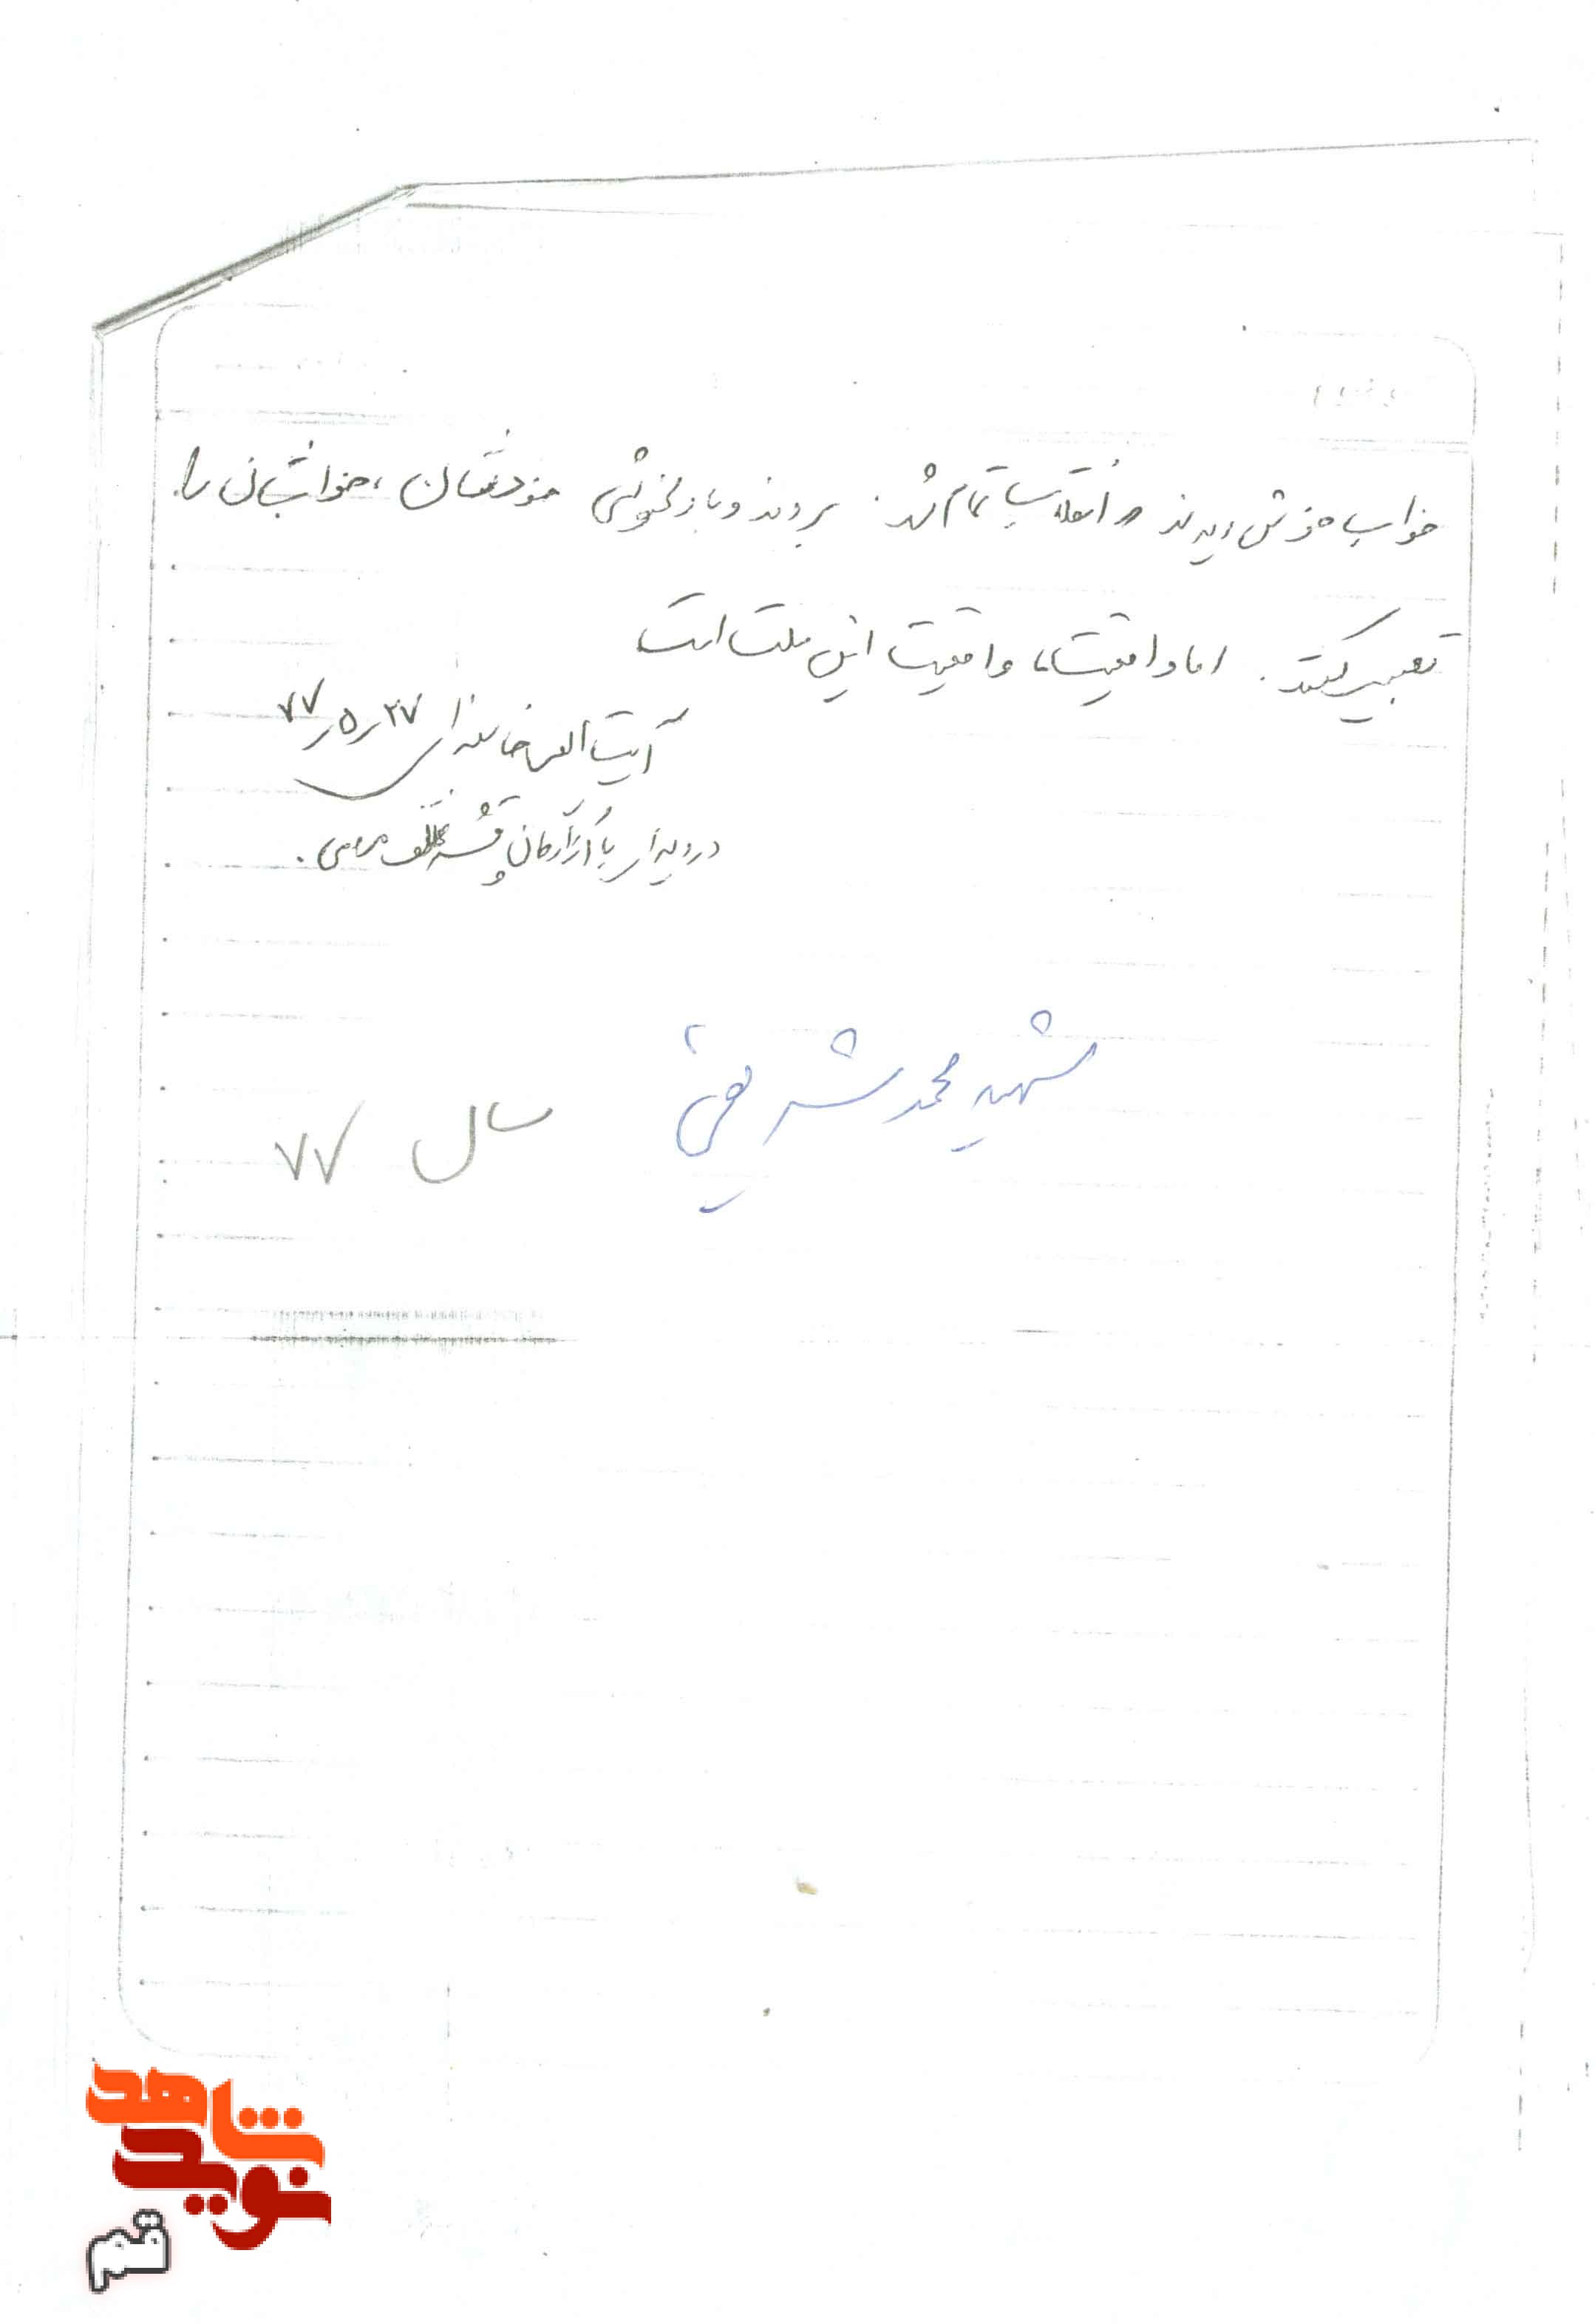 خواب خوش دیدند که انقلاب تمام شد. بروند و با دلخوشی خودشان، خوابشان را
تعبیر کنند. اما واقعیت ما، واقعیت این ملت است
آیت الله خامنه ای ۷۷٫۵٫۲۷
در دیدار با آزادگان و قشرهای مختلف مردمی.
شهید محمد شریفی
سال ۷۷
شاهد
نوید
قم